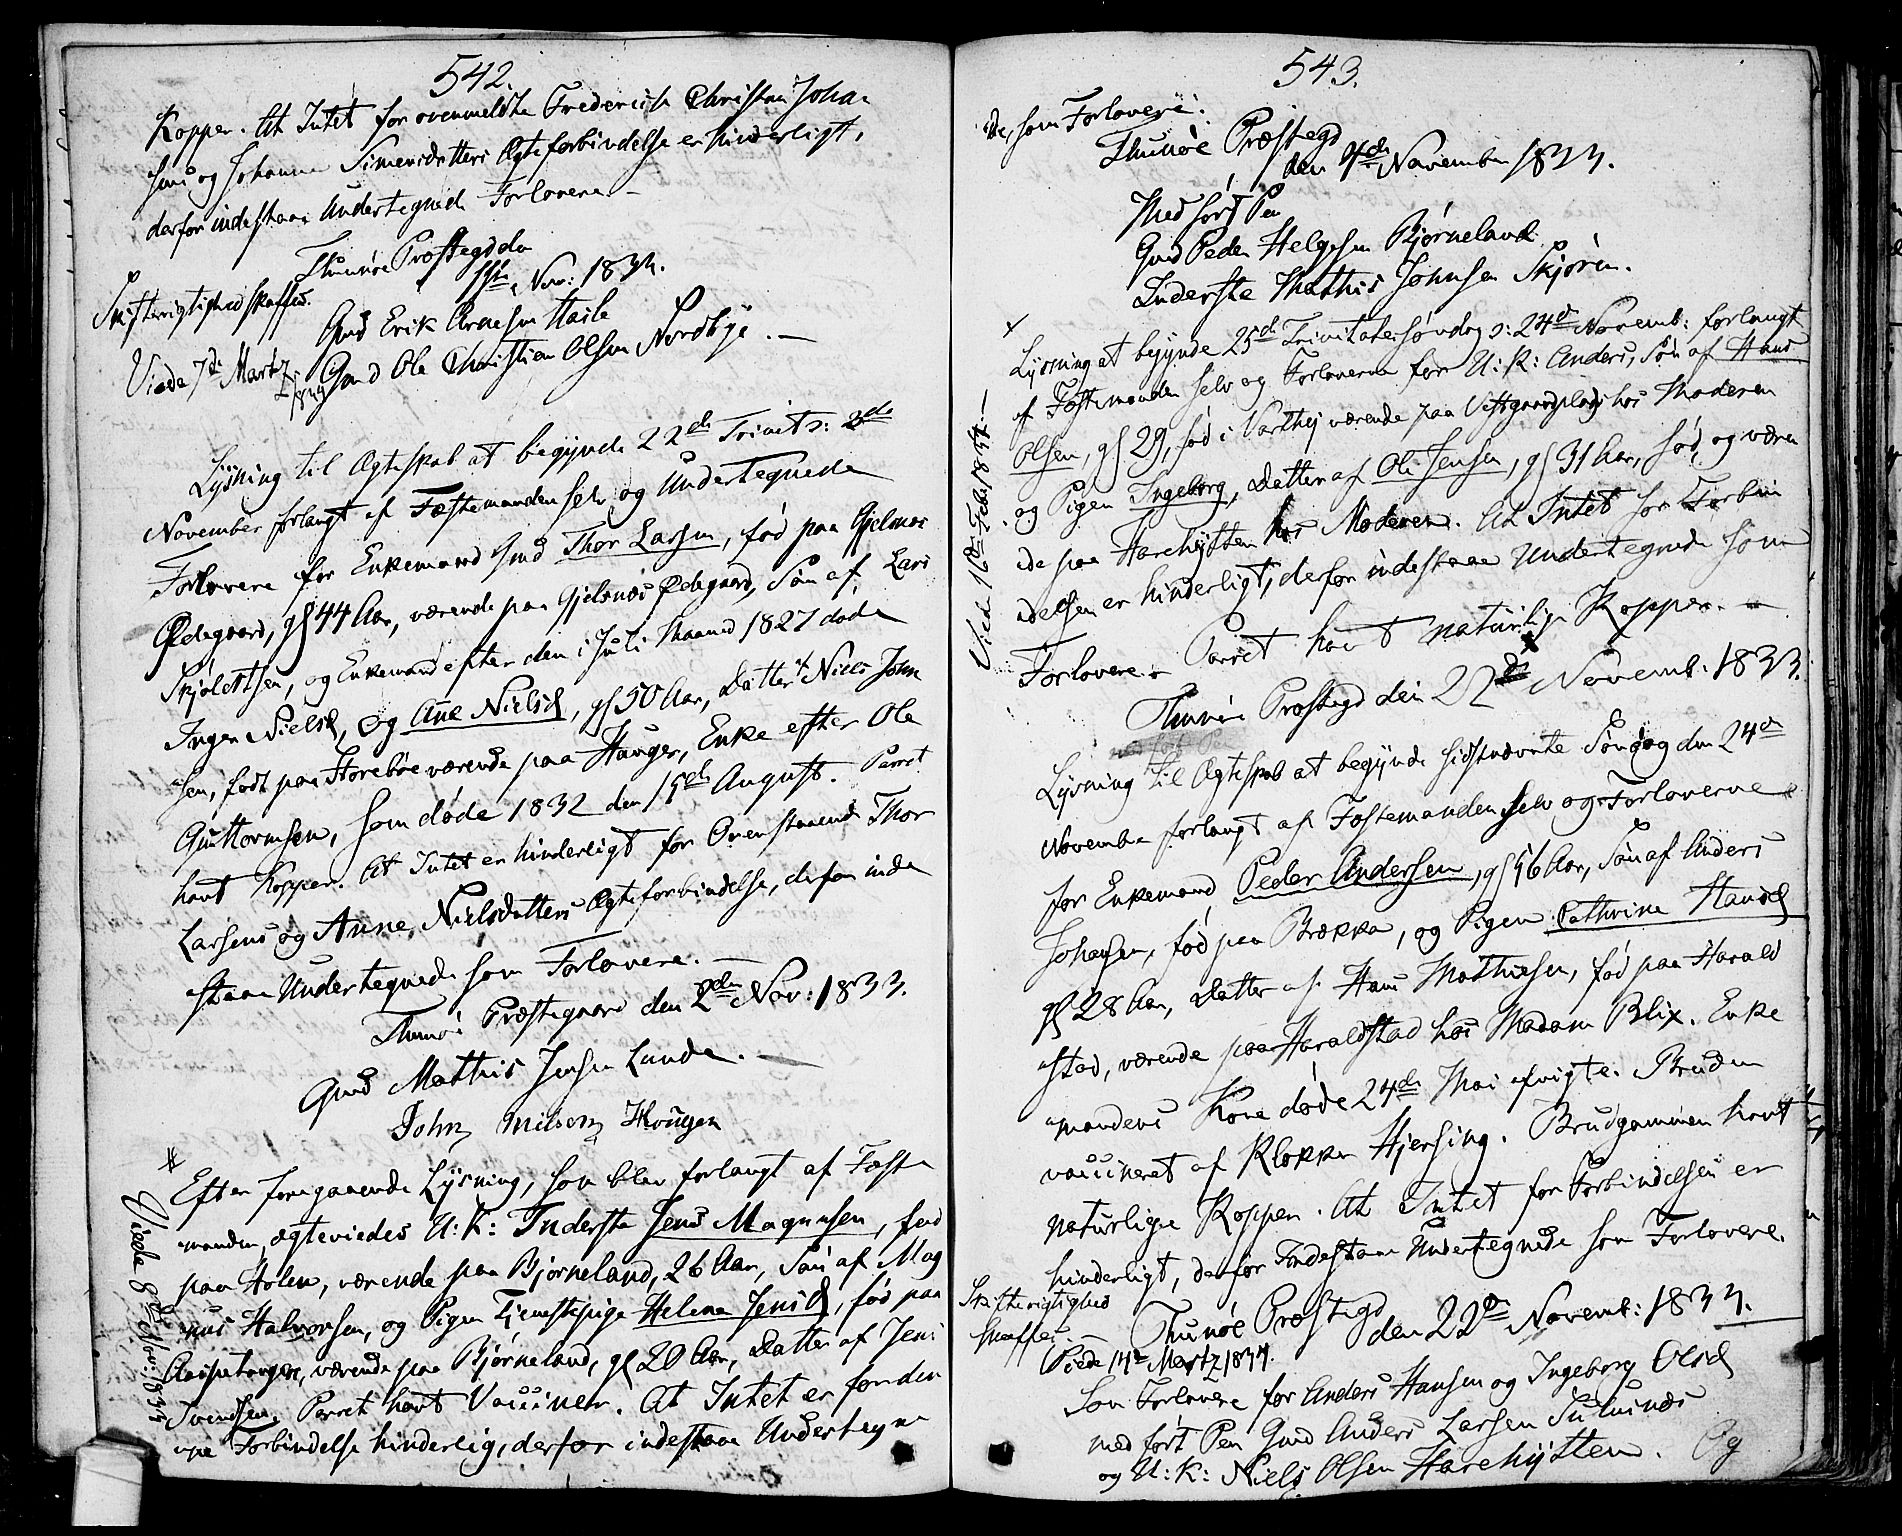 542.
Kopper. At Intet for ovenmeldte Frederich Christian Joha-
sens og Johanne Simensdatters Ægteforbindelse er hinderligt,
derfor indestaae Undertegnede Forlovere –
Thunøe Præstegd den
Nov: 1833.
Skifterigtighed skaffes.
Gmd Erik Arnesen Hasle
Viede 7de Martz
1834
Gmd Ole Christian Olsen Nordbye. –
Lysning til Ægteskab at begynde 22de Trinit: 3de
November forlangt af Fæstemanden selv og Undertegnede
Forlovere for Enkemand Gmd Thor Larsen, fød paa Gjelsnæs
Ødegaard, gl 44 Aar, værende paa Gjelsnæs Ødegaard, Søn af Lars
Skjoldtsen, og Enkemand efter den i Juli Maaned 1827 døde
Inger Nielsd, og Ane Nielsd, gl 50 Aar, Datter af Niels John
sen, født paa Storebøe værende paa Hauger, Enke efter Ole
Guttormsen, som døde 1832 den 15de August. Parret
havt Kopper. At Intet er hinderligt for Ovenstaaende Thor
Larsens og Anne Nielsdatters Ægteforbindelse, derfor inde
staae Undertegnede som Forlovere. –
Thunøe Præstegaard den 2den Nov: 1833.
Gmd Mathis Jensen Lunde. –
John Nilsen Hougen
#
Efter foregaaende Lysning, som blev forlangt af Fæste
manden, ægteviedes U: K: Inderste Jens Magnusen, fød
paa Holen, værende paa Bjørneland, 26 Aar, Søn af Mag
nus Halvorsen, og Pigen Tjenestepige Helene Jensd, fød paa
Aaspetorgen, værende paa Bjørneland, gl 20 Aar, Datter af Jens
Svendsen. Parret havt Vaccinen. At Intet er for den
ne Forbindelse hinderlig, derfor indestaae Undertegne
Viede 8de Nov: 1833
543.
de, som Forlovere:
Thunøe Præstegd
den 4de November 1833.
Med ført Pen
Gmd Peder Helgesen Bjørneland
Inderste Mathis Johnsen Skjøren.
x
Lysning at begynde 25de Trinitatessøndag d: 24de Novemb: forlangt
af Fæstemanden selv og Forloverne for U: K: Anders, Søn af Hans
Olsen, gl 29, fød i Varthej værende paa Vestgaardplads hos Moderen
og Pigen Ingeborg, Datter af Ole Jensen, gl 31 Aar, fød og være
de paa Harehytten hos Moderen. At Intet for Forbin
delsen er hinderligt, derfor indestaae Undertegnede som
Forlovere. – Parret havt naturlige Kopper. –
Viede 16de Febr 1834 –
Thunøe Præstegd den 22de Novemb: 1833.
med ført Pen
Lysning til Ægteskab at begynde sidstnævnte Søndag den 24de
November forlangt af Fæstemanden selv og Forloverne
for Enkemand Peder Andersen, gl 56 Aar, Søn af Anders
Johansen, fød paa Brække, og Pigen Cathrine Hansd
gl 28 Aar, Datter af Hans Mathiesen, fød paa Harald
stad, værende paa Haraldstad hos Madam Blix. Enke
mandens Kone døde 24de Mai afvigte. Bruden
vaccineret af Klokker Hjersing. Brudgommen havt
naturlige Kopper. At Intet for Forbindelsen er
hinderligt, derfor Indestaae Undertegnede som Forlovere.
Skifterigtighed
skaffes. –
Thunøe Præstegd
den 22de Novemb: 1833.
Viede 14de Martz 1834.
Som Forlovere for Anders Hansen og Ingeborg Olsd
med ført Pen Gmd Anders Larsen
og U: K: Niels Olsen Harehytten. Og